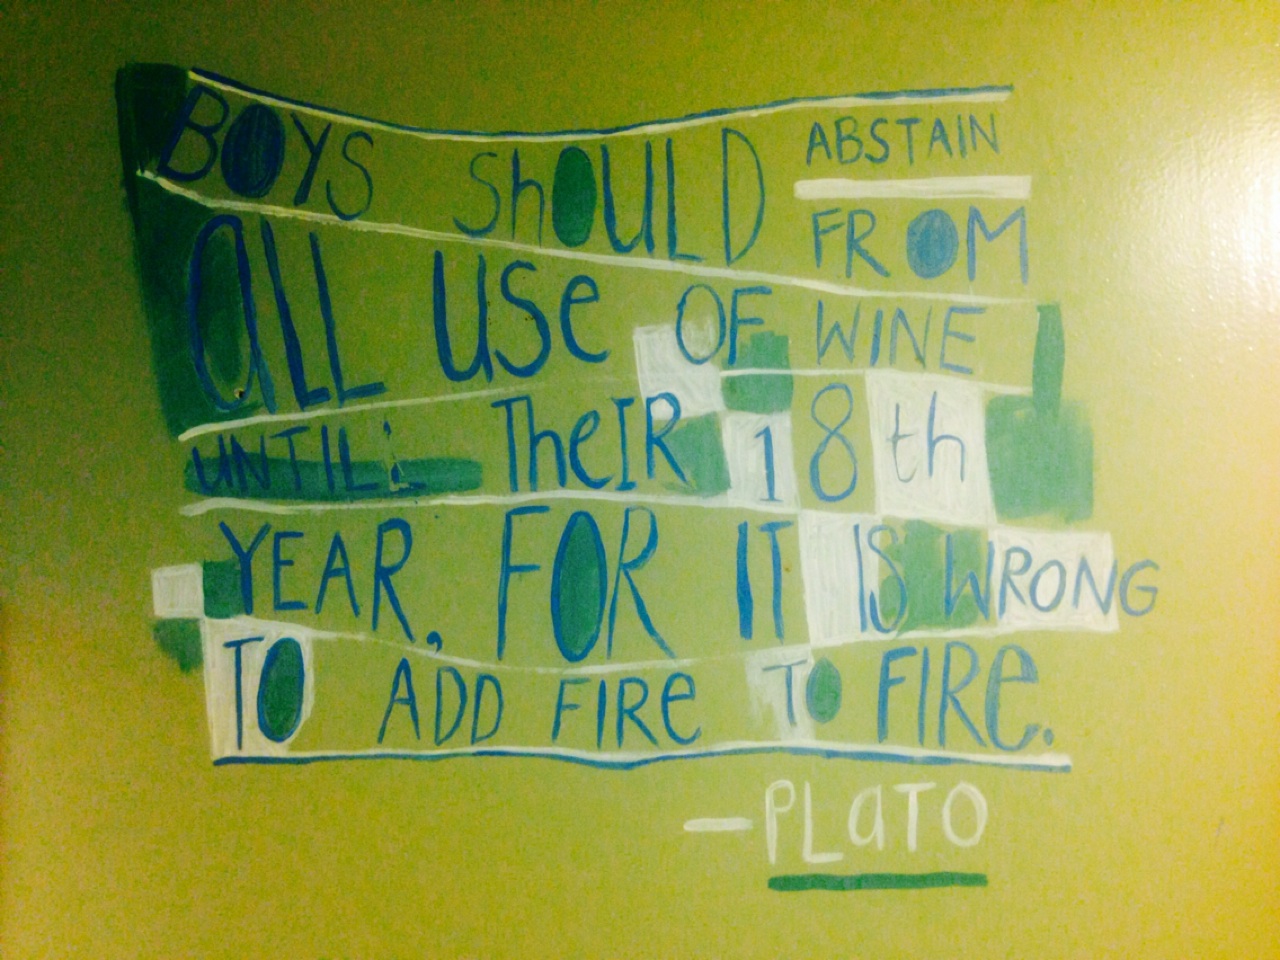 BOYS ShOULD ABSTAIN
FROM
aLL USe OF WINE
UNTILL TheIR 18th
YEAR, FOR IT IS WRONG
TO ADD FIRe TO FIRe.
—PLaTO